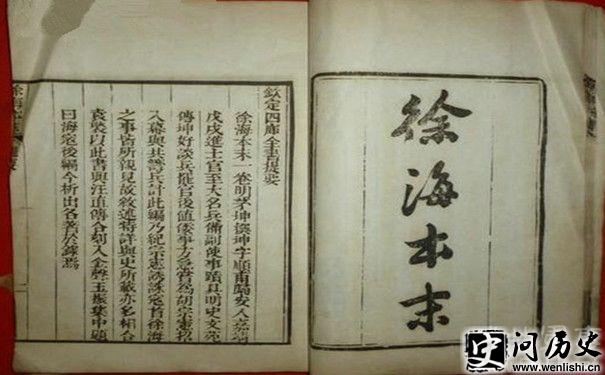 徐海本末
欽定四庫全書提要
徐海本末一卷明茅坤撰坤字順甫歸安人嘉靖
戊戌進士官至大名兵備副使事蹟具明史文苑
傳坤好談兵罷官後値倭事方急嘗爲胡宗憲招
入幕與共籌兵計此編乃紀宗憲誘誅寇首徐海
之事皆所親見故敘述特詳與史所載亦多相合
袁褧以此書與汪直傳合刻入金聲玉振集中題
曰海寇後編今析出各著於錄焉
问历史
www.wenlishi.cn